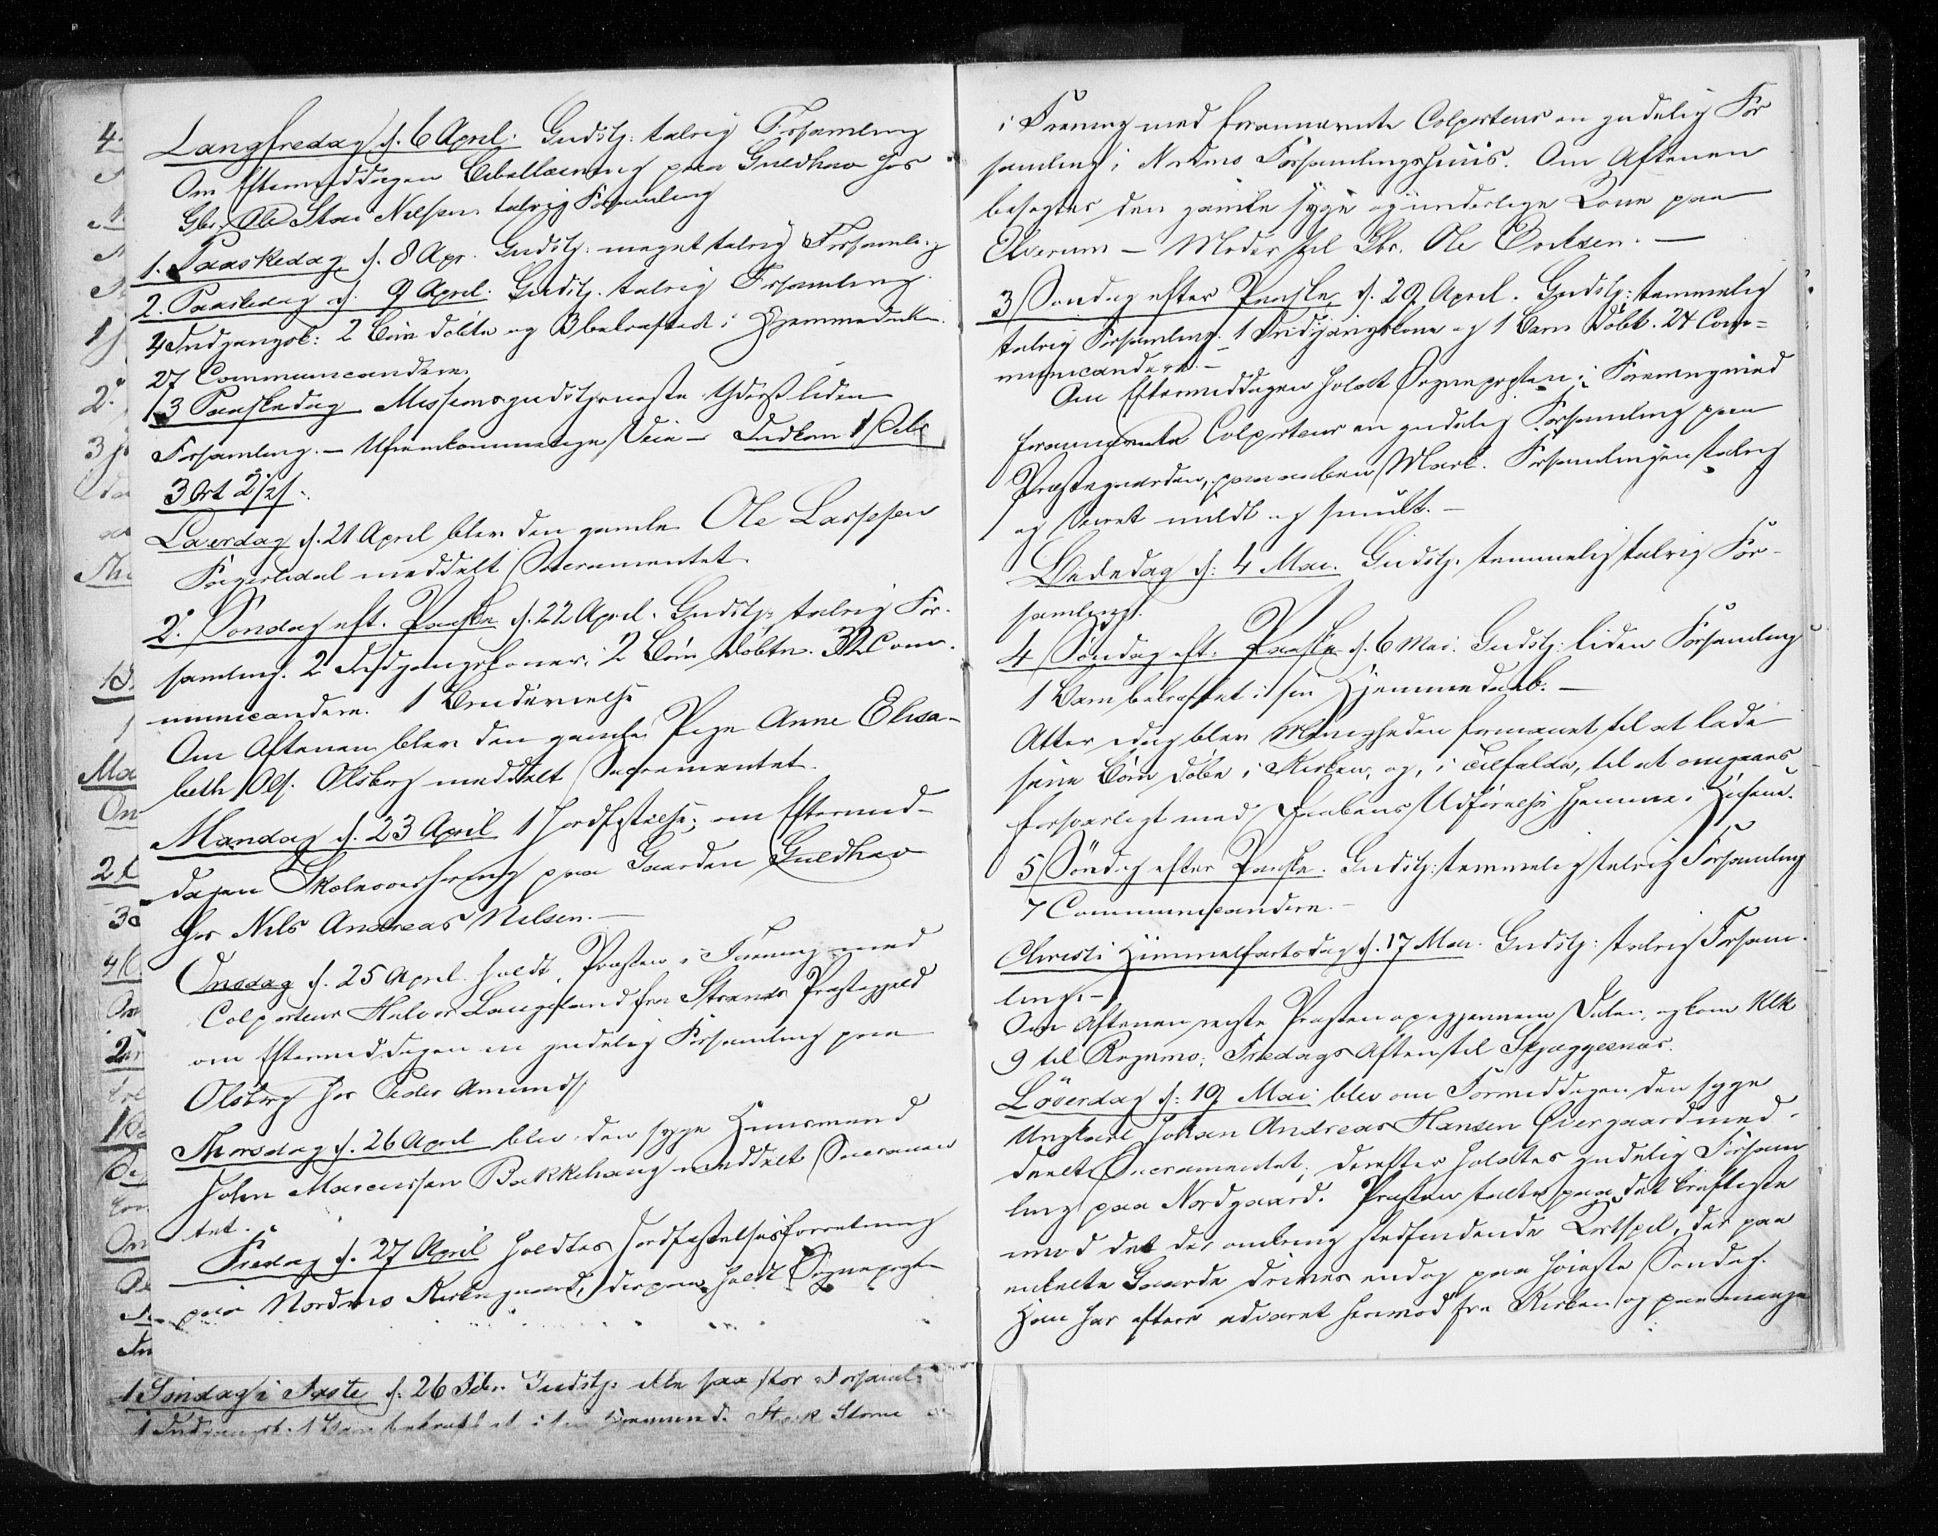 Langfredag d. 6 April. Gudstj: talrig Forsamling
Om Eftermiddagen Bibellæsning paa Guldhav hos
Gbr. Ole Stor Nilsen talrig Forsamling
1. Paaskedag d. 8 Apr. Gudstj: meget talrig Forsamling
2. Paaskedag d. 9 April. Gudstj. talrig Forsamling.
4 Indgangsk: 2 Børn døbte og 3 bekræftede i Hjemmedaab.
27 Communicandere.
3 Paaskedag Missionsgudstjeneste yderst liden
Forsamling. – Ufremkommelige Veie – Indkom 1 Spd
3 Ort 2½ s.
Løverdag d. 21 April blev den gamle Ole Larssen
meddelt Sacramentet.
2. Søndag eft. Paaske d. 22 April. Gudstj. talrig For-
samling. 2 Indgangskoner, 2 Børn døbte. 32 Com-
municandere. 1 Brudevielse
Om Aftenen blev den gamle Pige Anne Elisa-
beth Ols. Olsborg meddelt Sacramentet.
Mandag d. 23 April 1 Jordfæstelse; om Eftermid-
dagen Skoleovershøring paa Gaarden Guldhav
hos Nils Andreas Nilsen. –
Onsdag d. 25 April holdt Præsten i Forening med
Colporteur Halvor Langeland fra Strands Præstegjeld
om Eftermiddagen en gudelig Forsamling paa
Olsborg hos Peder Amunds.
Thorsdag d. 26 April blev den syge Huusmand
John Marcussen Bakkehaug meddelt Sacramen-
tet.
Fredag d. 27 April holdtes Jordfæstelsesforretning
paa Nordmo Kirkegaard, derpaa holdt Sognepræsten
1 Søndag i Faste d. 26 Febr. Gudstj. ikke saa stor Forsaml.
1 Indgangsk. 1 Barn bekræftet i sin Hjemmed. Stærk Storm
i Forening med forannævnte Colporteur en gudelig For
samling i Nordmo Forsamlingshuus. Om Aftenen
besøgtes den gamle syge og underlige Kone paa
Elverum – Moder til Gbr. Ole Ericksen. –
3 Søndag efter Paaske d. 29 April. Gudstj: temmelig
talrig Forsamling. 1 Indgangskone og 1 Barn døbt. 24 Com=
municandere. –
Om Eftermiddagen holdt Sognepræsten i Forening med
forannævnte Colporteur en gudelig Forsamling paa
Præstegaarden, paa aaben Mark. Forsamlingen talrig
og Veiret mildt og smukt. –
Bededag d: 4 Mai. Gudstj. temmelig talrig For-
samling.
4 Søndag eft. Paaske d. 6 Mai. Gudstj: liden Forsamling
1 Barn bekræftet i sin Hjemmedaab. –
Atter idag blev Menigheden formanet til at lade
sine Børn døbe i Kirken, og, i Tilfælde, til at omgaaes
forsvarligt med Daabens Udførelse hjemme i Husene.
5 Søndag efter Paaske. Gudstj: temmelig talrig Forsamling
7 Communicandere. –
Christi Himmelfartsdag d. 17 Mai. Gudstj: talrig Forsam-
ling. –
Om Aftenen reiste Præsten opigjennem Dalen, og kom Klk
9 til Rognmo. Fredags Aften til Skjæggesnæs.
Løverdag d: 19 Mai blev om Formiddagen den syge
Ungkarl Johan Andreas Hansen Øvergaard med-
deelt Sacramentet, derefter holdtes gudelig Forsam
ling paa Nordgaard. Præsten talte paa det kraftigste
mod det der omkring stedfindende Kortspil, der paa
enkelte Gaarde drives endog paa høieste Søndag.
Han har oftere advaret herimod fra Kirken og paa mange